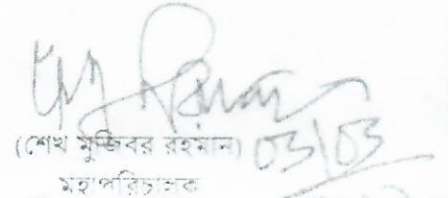 (শেখ মুজিবর রহমান) 03/03
মহাপরিচালক